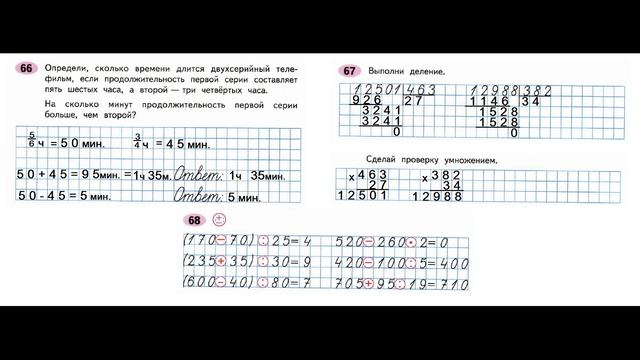 66 Определи, сколько времени длится двухсерийный теле-
фильм, если продолжительность первой серии составляет
пять шестых часа, а второй — три четвёртых часа.
На сколько минут продолжительность первой серии
больше, чем второй?
5/6 ч = 50 мин. 3/4 ч = 45 мин.
50 + 45 = 95 мин. = 1ч 35м. Ответ: 1ч 35мин.
50 - 45 = 5 мин. Ответ: 5 мин.
67 Выполни деление.
12501 463
926 27
3241
3241
0
12988 382
1146 34
1528
1528
0
Сделай проверку умножением.
x 463
27
12501
x 382
34
12988
68 ±
(170 − 70) : 25 = 4 520 − 260 · 2 = 0
(235 + 35) : 30 = 9 420 − 100 : 5 = 400
(600 − 40) : 80 = 7 705 + 95 : 19 = 710